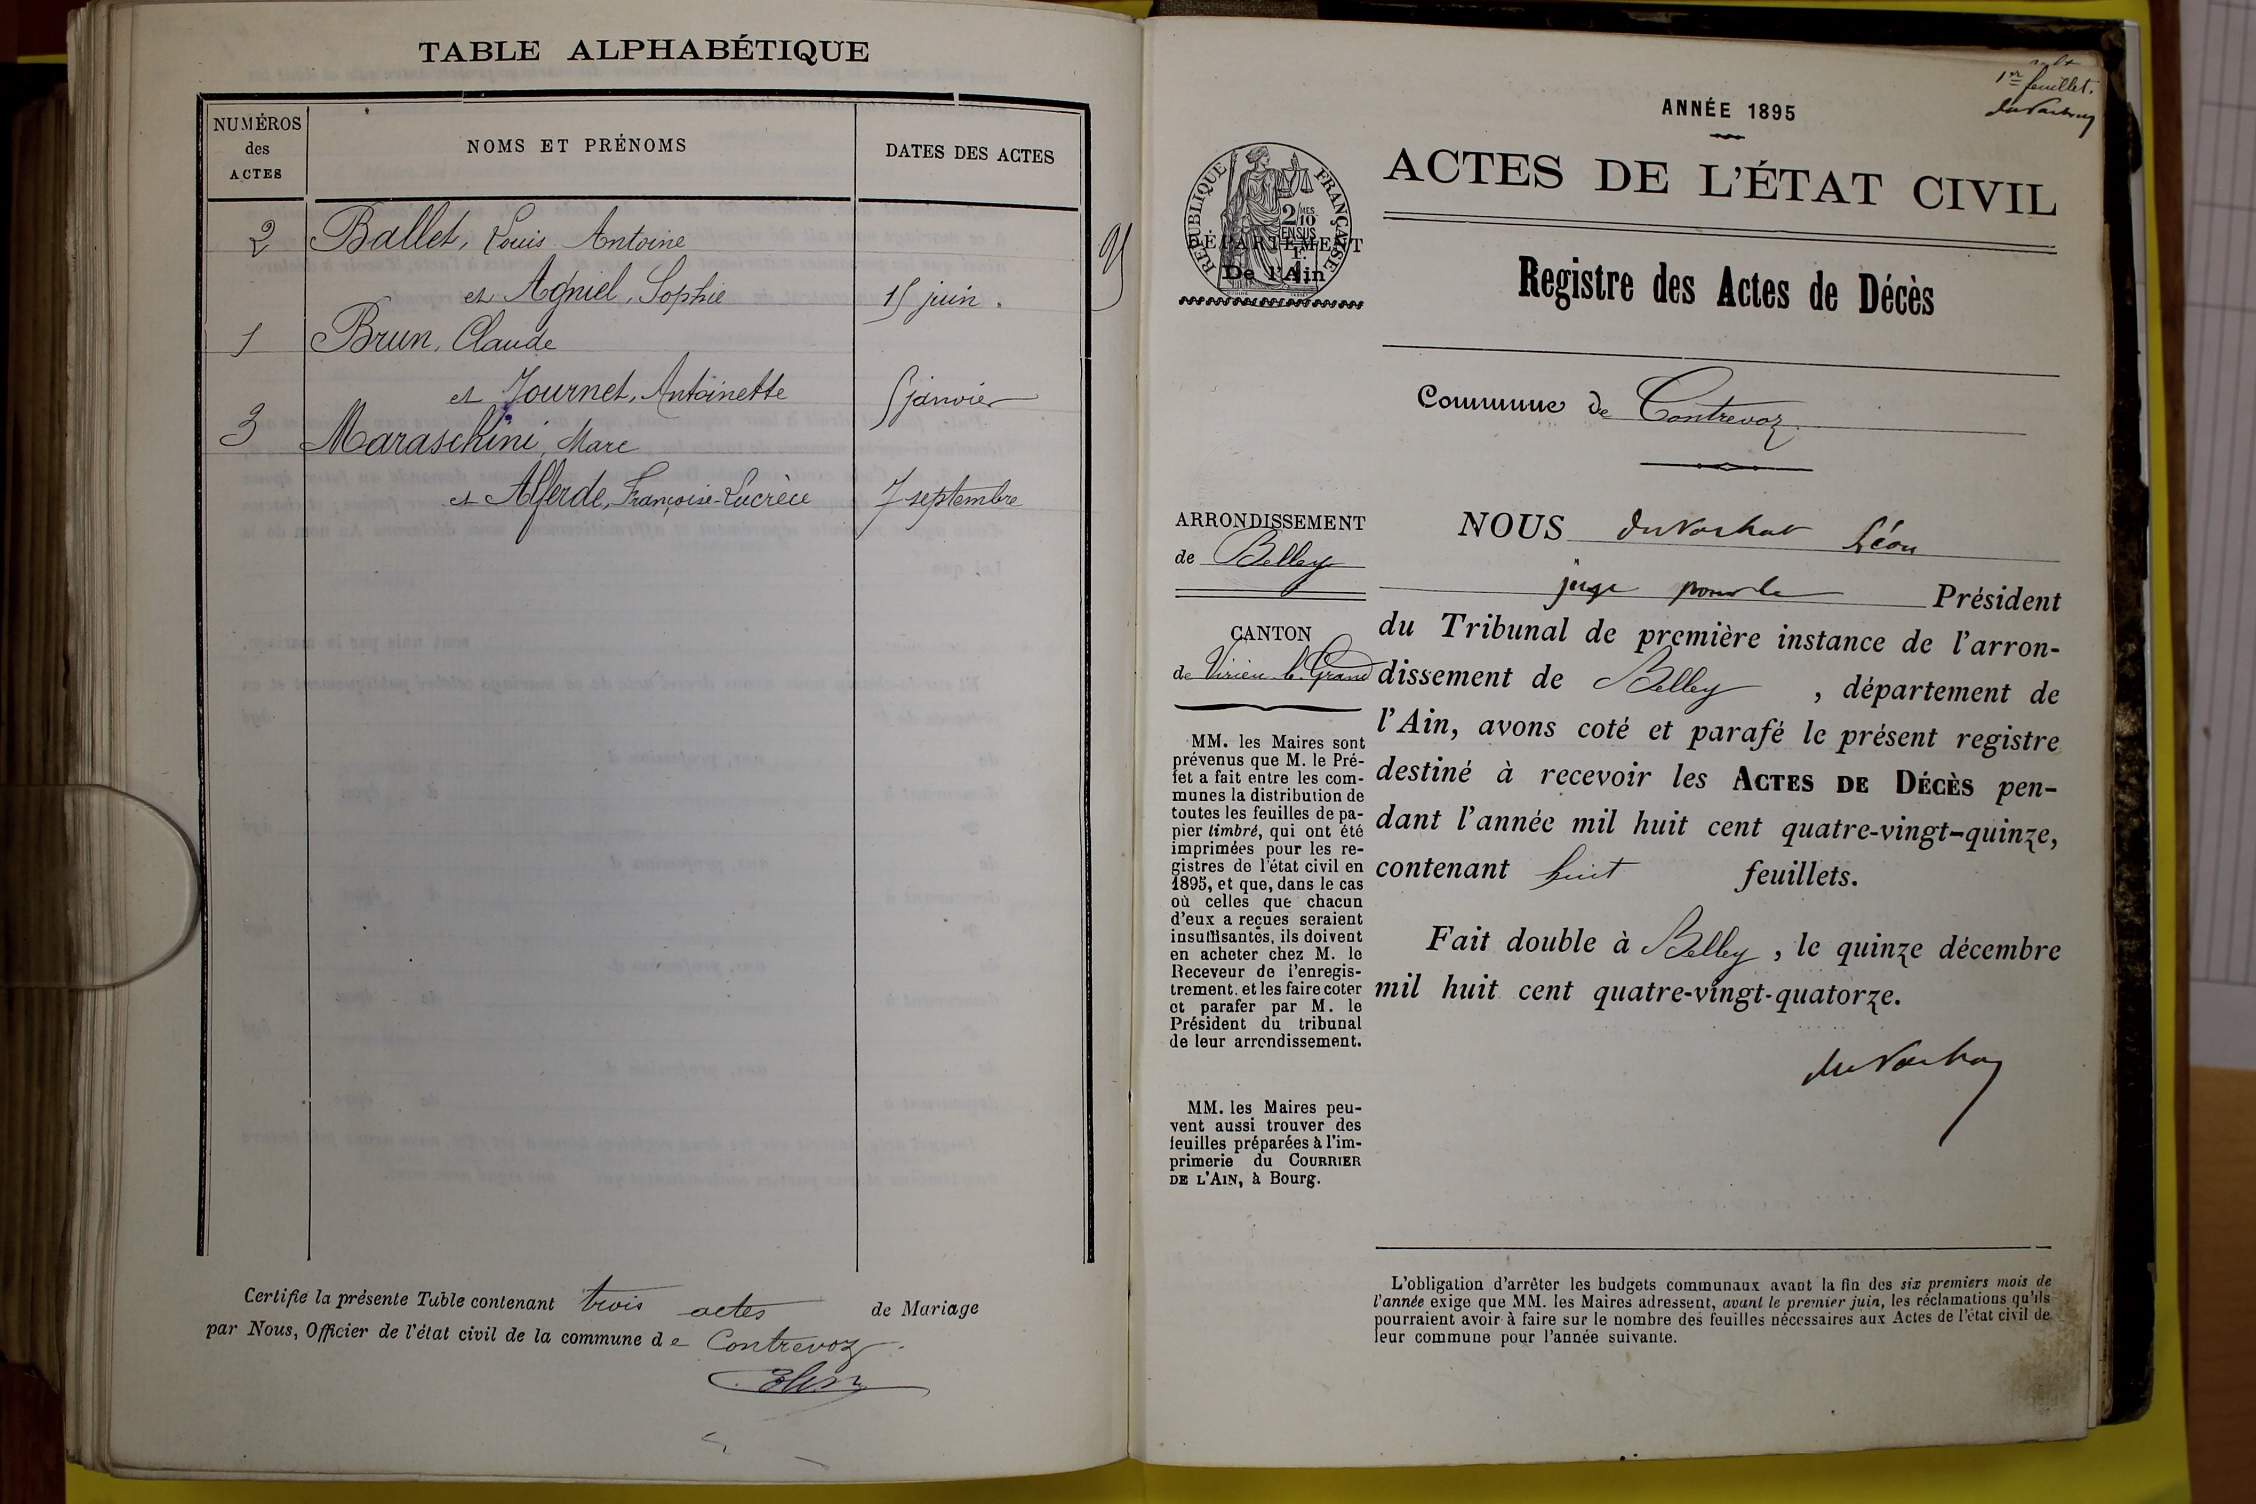 TABLE ALPHABÉTIQUE
NUMÉROS
des
ACTES
NOMS ET PRÉNOMS
DATES DES ACTES
2 Ballet, Louis Antoine
et Agniel, Sophie 15 juin.
1 Brun, Claude
et Journet, Antoinette 5 janvier
3 Maraschini, Marc
et Alferde, Françoise-Lucrèce 7 septembre
Certifie la présente Table contenant trois actes de Mariage
par Nous, Officier de l'état civil de la commune de Contrevoz.
95
1er feuillet.
ANNÉE 1895
ACTES DE L'ÉTAT CIVIL
RÉPUBLIQUE FRANÇAISE
2/10
MES
EN SUS
DÉPARTEMENT
De l'Ain
Registre des Actes de Décès
Commune de Contrevoz.
ARRONDISSEMENT
de Belley
CANTON
de Virieu-le-Grand
MM. les Maires sont
prévenus que M. le Pré-
fet a fait entre les com-
munes la distribution de
toutes les feuilles de pa-
pier timbré, qui ont été
imprimées pour les re-
gistres de l'état civil en
1895, et que, dans le cas
où celles que chacun
d'eux a reçues seraient
insuffisantes, ils doivent
en acheter chez M. le
Receveur de l'enregis-
trement. et les faire coter
et parafer par M. le
Président du tribunal
de leur arrondissement.
MM. les Maires peu-
vent aussi trouver des
feuilles préparées à l'im-
primerie du COURRIER
DE L'AIN, à Bourg.
NOUS Léon
juge pour le Président
du Tribunal de première instance de l'arron-
dissement de Belley, département de
l'Ain, avons coté et parafé le présent registre
destiné à recevoir les ACTES DE DÉCÈS pen-
dant l'année mil huit cent quatre-vingt-quinze,
contenant huit feuillets.
Fait double à Belley, le quinze décembre
mil huit cent quatre-vingt-quatorze.
L'obligation d'arrêter les budgets communaux avant la fin des six premiers mois de
l'année exige que MM. les Maires adressent, avant le premier juin, les réclamations qu'ils
pourraient avoir à faire sur le nombre des feuilles nécessaires aux Actes de l'état civil de
leur commune pour l'année suivante.